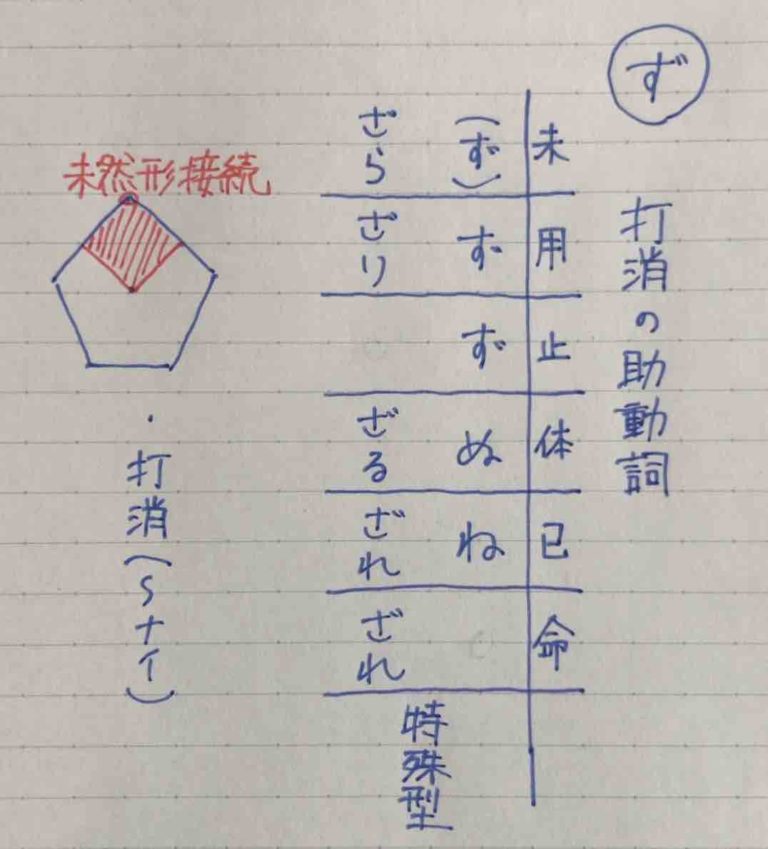 ず
打消の助動詞
未
用
止
体
已
命
(ず)
ず
ず
ぬ
ね
ざら
ざり
ざる
ざれ
ざれ
特殊型
未然形接続
・打消(〜ナイ)